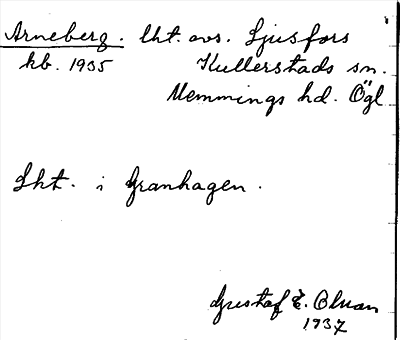 Arneberg. lht. avs. Ljusfors
kb. 1935 Kullerstads sn.
Memmings hd. Ögl
Lht. i Granhagen.
Gustaf E. Olsson
1937